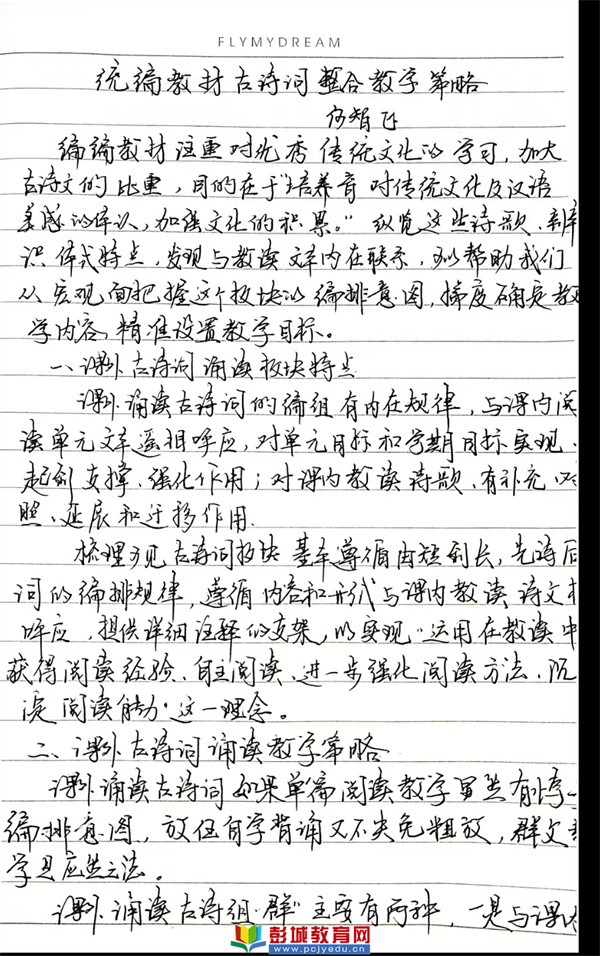 FLYMYDREAM
统编教材古诗词整合教学策略
编编教材注重对优秀传统文化的学习，加大
古诗文的比重，目的在于“培养育对传统文化及汉语
美感的体认，加强文化的积累。”纵览这些诗歌、
识体式特点，发现与教读文本内在联系，可以帮助我们
从宏观面把握这个板块的编排意图，梯度确定教
学内容，精准设置教学目标。
一、课外古诗词诵读板块特点
课外诵读古诗词的编组有内在规律，与课内阅
读单元文本遥相呼应，对单元目标和学期目标实现、
起到支撑、强化作用；对课内教读诗歌、有补充、对
照、延展和迁移作用.
梳理可见古诗词板块基本遵循由短到长，先诗后
词的编排规律，遵循内容和形式与课内教读诗文相
呼应，提供详细注释的支架，以实现“运用在教读中
获得阅读经验、自主阅读、进一步强化阅读方法、沉
淀阅读能力”这一理念。
二、课外古诗词诵读教学策略
课外诵读古诗词如果单篇阅读教学显然有悖
编排意图，放任自学背诵又不失免粗放，群文教
学是应然之法。
课外诵读古诗组“群”主要有两种，一是与课内
彭城教育网
www.pcjyedu.com